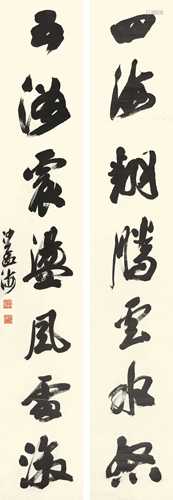 四海翻腾云水怒
五洲震盪风雷激
沙孟海